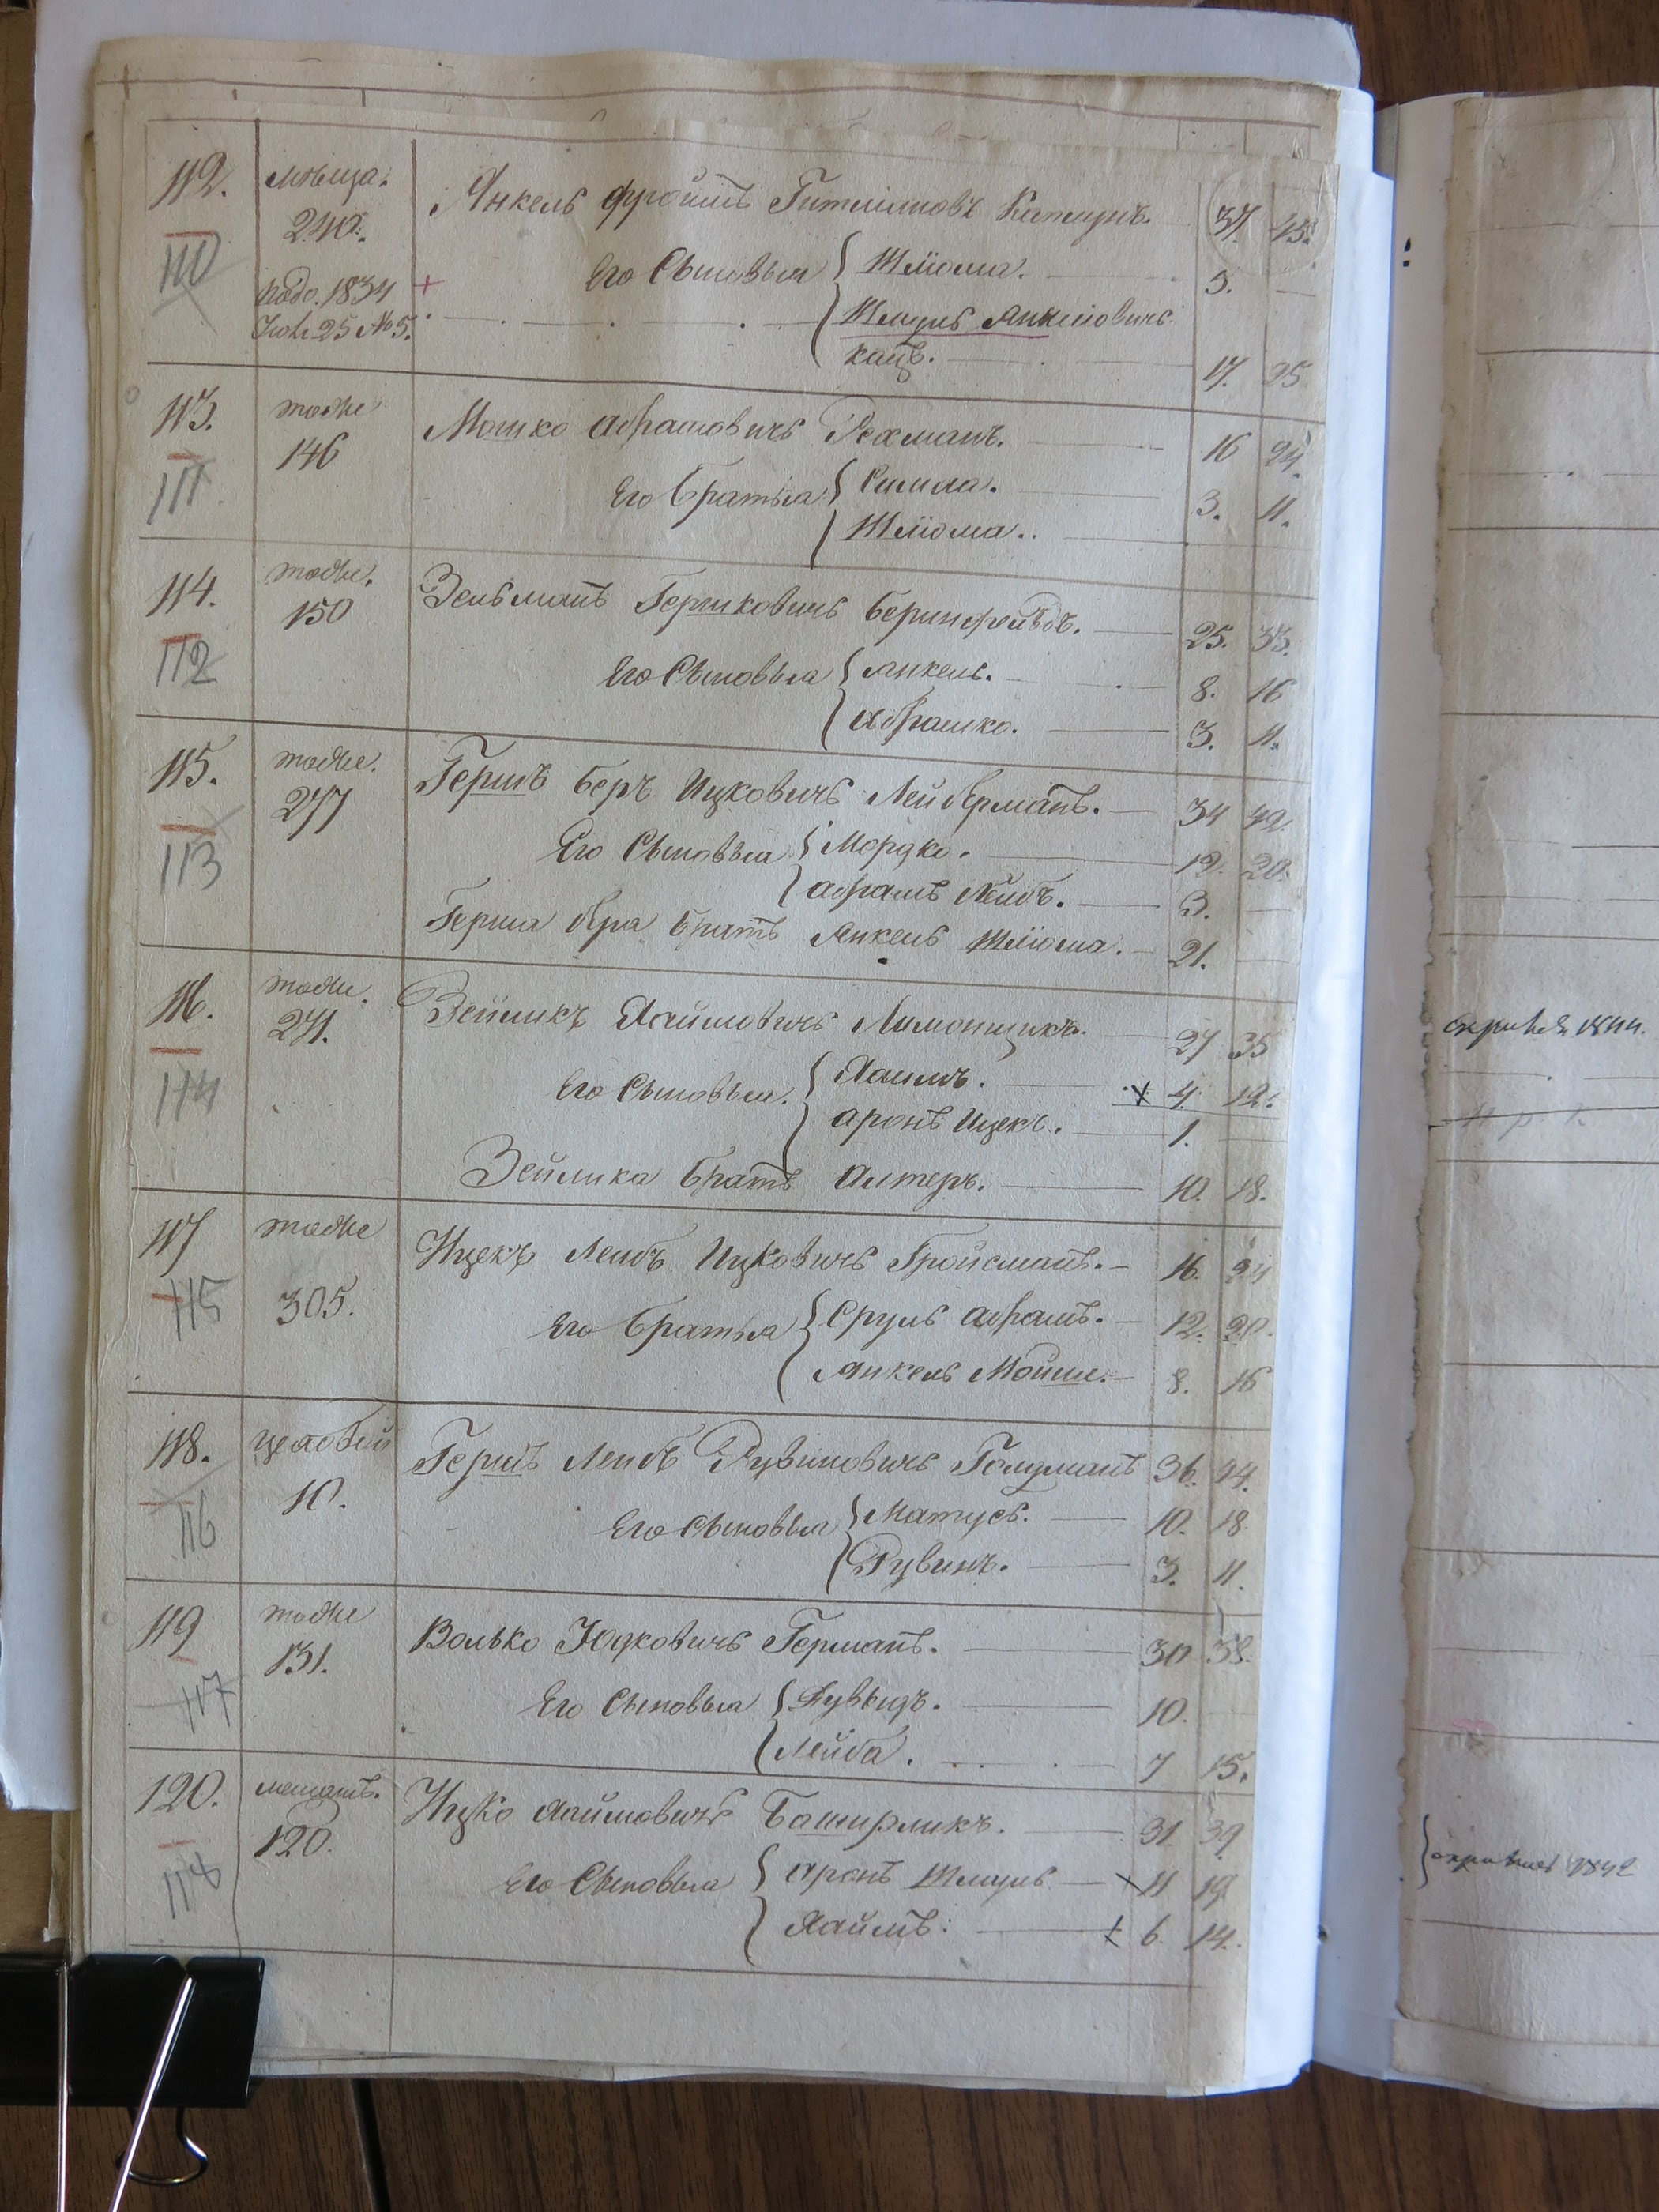 112. мѣща. Янкель Фроимъ Гитмановъ 37. 45.
110 240. Его Сыновья { Шліома. — 3. —
подо. 1834 + Шмуль Янкеліовичь
Іюля 25 №5. кацъ. — 17. 25
113. тоже Мошко Абрамовичъ Рехманъ. — 16 24.
111 146 Его Братья { 3. 11.
Шліома.. —
114. тоже. Зельманъ Гершковичъ Беринфельдъ. — 25. 33.
112 150 Его Сыновья { Янкель. — 8. 16
Абрашко. — 3. 11.
115. тоже. Гершъ Беръ Ицковичъ Лейберманъ. — 34 42.
113 277 Его Сыновья { Мордко. — 12. 20.
Абрамъ Лейбъ. — 3. —
Герша Бера Братъ Янкель Шліома. — 21. —
116. тоже. Зейликъ Хаимовичъ Лимонщикъ. — 27 35
114 271. Его Сыновья. { Хаимъ. х 4. 12.
Аронъ Ицекъ. — 1. —
Зейлика Братъ Алтеръ. — 10. 18.
117 тоже Ицекъ Лейбъ Ицковичъ Гройсманъ. — 16. 24
115 305. Его Братья { Сруль Абрамъ. — 12. 20.
Янкель Мойше. — 8. 16
118. цеховой Гершъ Лейбъ Рувиновичъ Голдманъ 36. 44.
116 10. Его Сыновья { Матусъ. — 10. 18.
Рувинъ. — 3. 11.
119 тоже Волько Юдковичъ Германъ. — 30 38.
117 131. Его Сыновья { Дувыдъ. — 10.
Лейба. — 7 15.
120. мещанъ. Ицко Хаимовичъ Баширликъ. — 31. 39
118 120. Его Сыновья { Аронъ Шмуль — х 11 19
Хаимъ: — х 6. 14.
1844.
1842